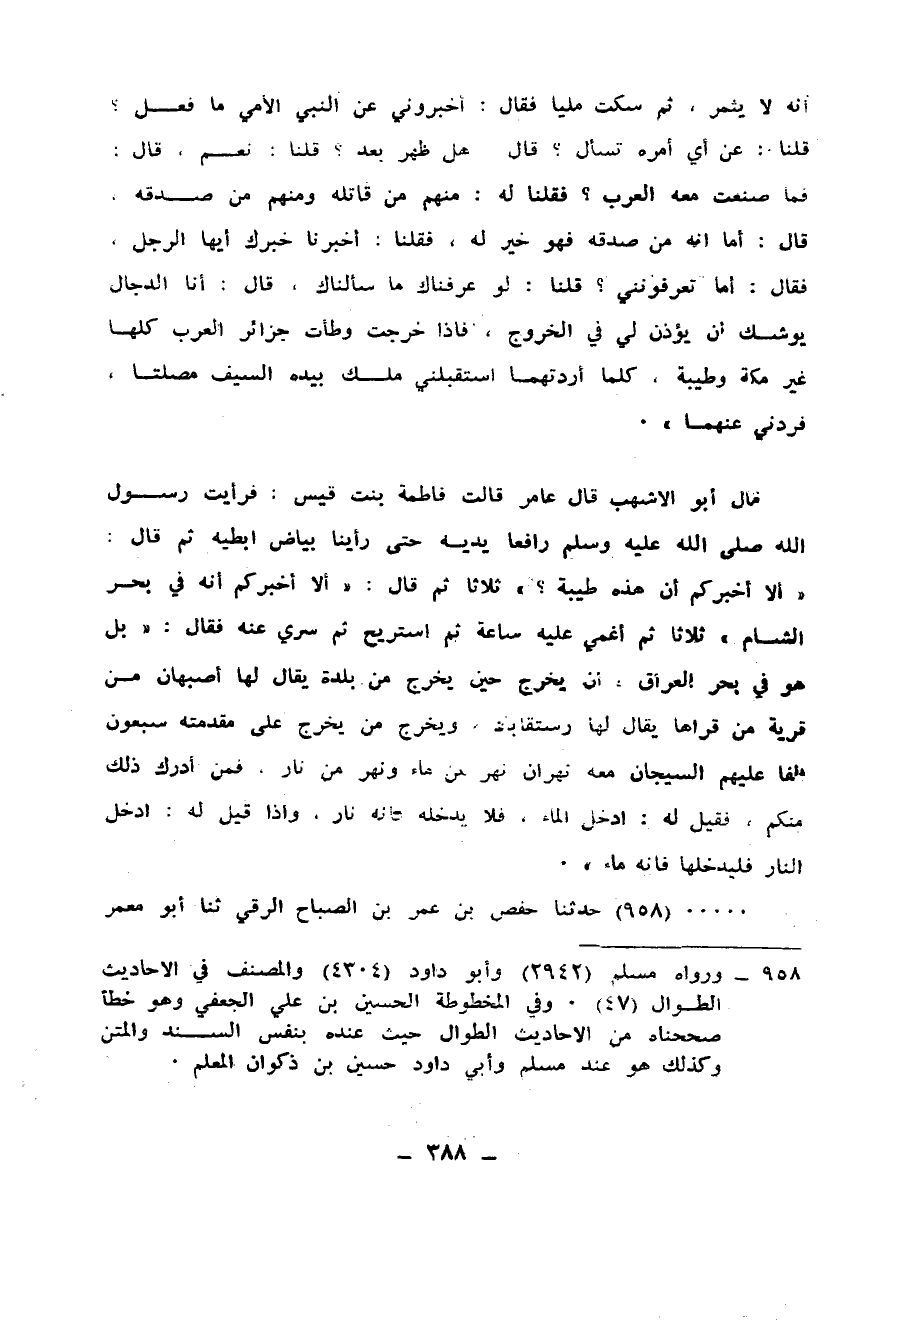 أنه لا يثمر ، ثم سكت مليا فقال : أخبروني عن النبي الأمي ما فعــل ؟
قلنا : عن أي أمره تسأل ؟ قال هل ظهر بعد ؟ قلنا : نعــم ، قال :
فما صنعت معه العرب ؟ فقلنا له : منهم من قاتله ومنهم من صــدقه ،
قال : أما انه من صدقه فهو خير له ، فقلنا : أخبرنا خبرك أيها الرجل ،
فقال : أما تعرفونني ؟ قلنا : لو عرفناك ما سألناك ، قال : أنا الدجال
يوشــك أن يؤذن لي في الخروج ، فاذا خرجت وطأت جزائر العرب كلهــا
غير مكة وطيبة ، كلما أردتهمــا استقبلني ملــك بيده السيف مصلتــا ،
فردني عنهمــا » ·
قال أبو الاشهب قال عامر قالت فاطمة بنت قيس : فرأيت رســول
الله صلى الله عليه وسلم رافعا يديــه حتى رأينا بياض ابطيه ثم قال :
« ألا أخبركم أن هذه طيبة ؟ » ثلاثا ثم قال : « ألا أخبركم أنه في بحــر
الشــام » ثلاثا ثم أغمي عليه ساعة ثم استريح ثم سري عنه فقال : « بل
هو في بحر العراق ، أن يخرج حين يخرج من بلدة يقال لها أصبهان مــن
قرية من قراها يقال لها رستقاباد ، ويخرج من يخرج على مقدمته سبعون
ألفا عليهم السيجان معه نهران نهر من ماء ونهر من نار ، فمن أدرك ذلك
منكم ، فقيل له : ادخل الماء ، فلا يدخله فانه نار ، واذا قيل له : ادخل
النار فليدخلها فانه ماء » ·
····· (٩٥٨) حدثنا حفص بن عمر بن الصباح الرقي ثنا أبو معمر
٩٥٨ ــ ورواه مسلم (٢٩٤٢) وأبو داود (٤٣٠٤) والمصنف في الاحاديث
الطــوال (٤٧) · وفي المخطوطة الحسين بن علي الجعفي وهو خطأ
صححناه من الاحاديث الطوال حيث عنده بنفس الســند والمتن
وكذلك هو عند مسلم وأبي داود حسين بن ذكوان المعلم ·
ــ ٣٨٨ ــ